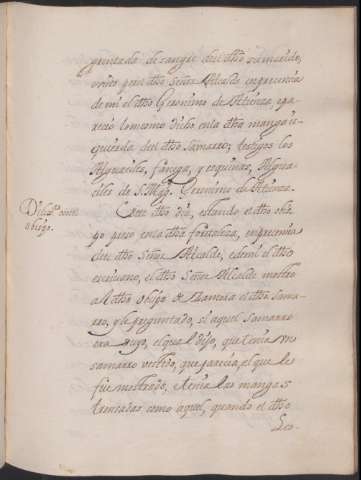 puntado de sangre del dho samarro,
por el dho Señor Alcalde en presencia
de mi el dho Geronimo de Atienza apa
recio lo mismo dicho en la dho manga iz
quierda del dho samarro; testigos los
Alguaciles, Zuñiga, y Esquinas, Algua
ciles de S. Mag. Geronimo de Atienza.
Dilig.ª con el
obispo.
Este dho dia, estando el dho obis
po preso en la dha fortaleza, en presencia
del dho Señor Alcalde, e de mi el dho
escrivano, el dho Señor Alcalde mostro
al dho Obispo de Zamora el dho sama
rro, y le preguntado, si aquel samarro
era suyo, el qual dijo, que tenia un
samarro vestido, que parecia, el que le
fue mostrado, e tenia las mangas
trentadas como aquel, quando el dho